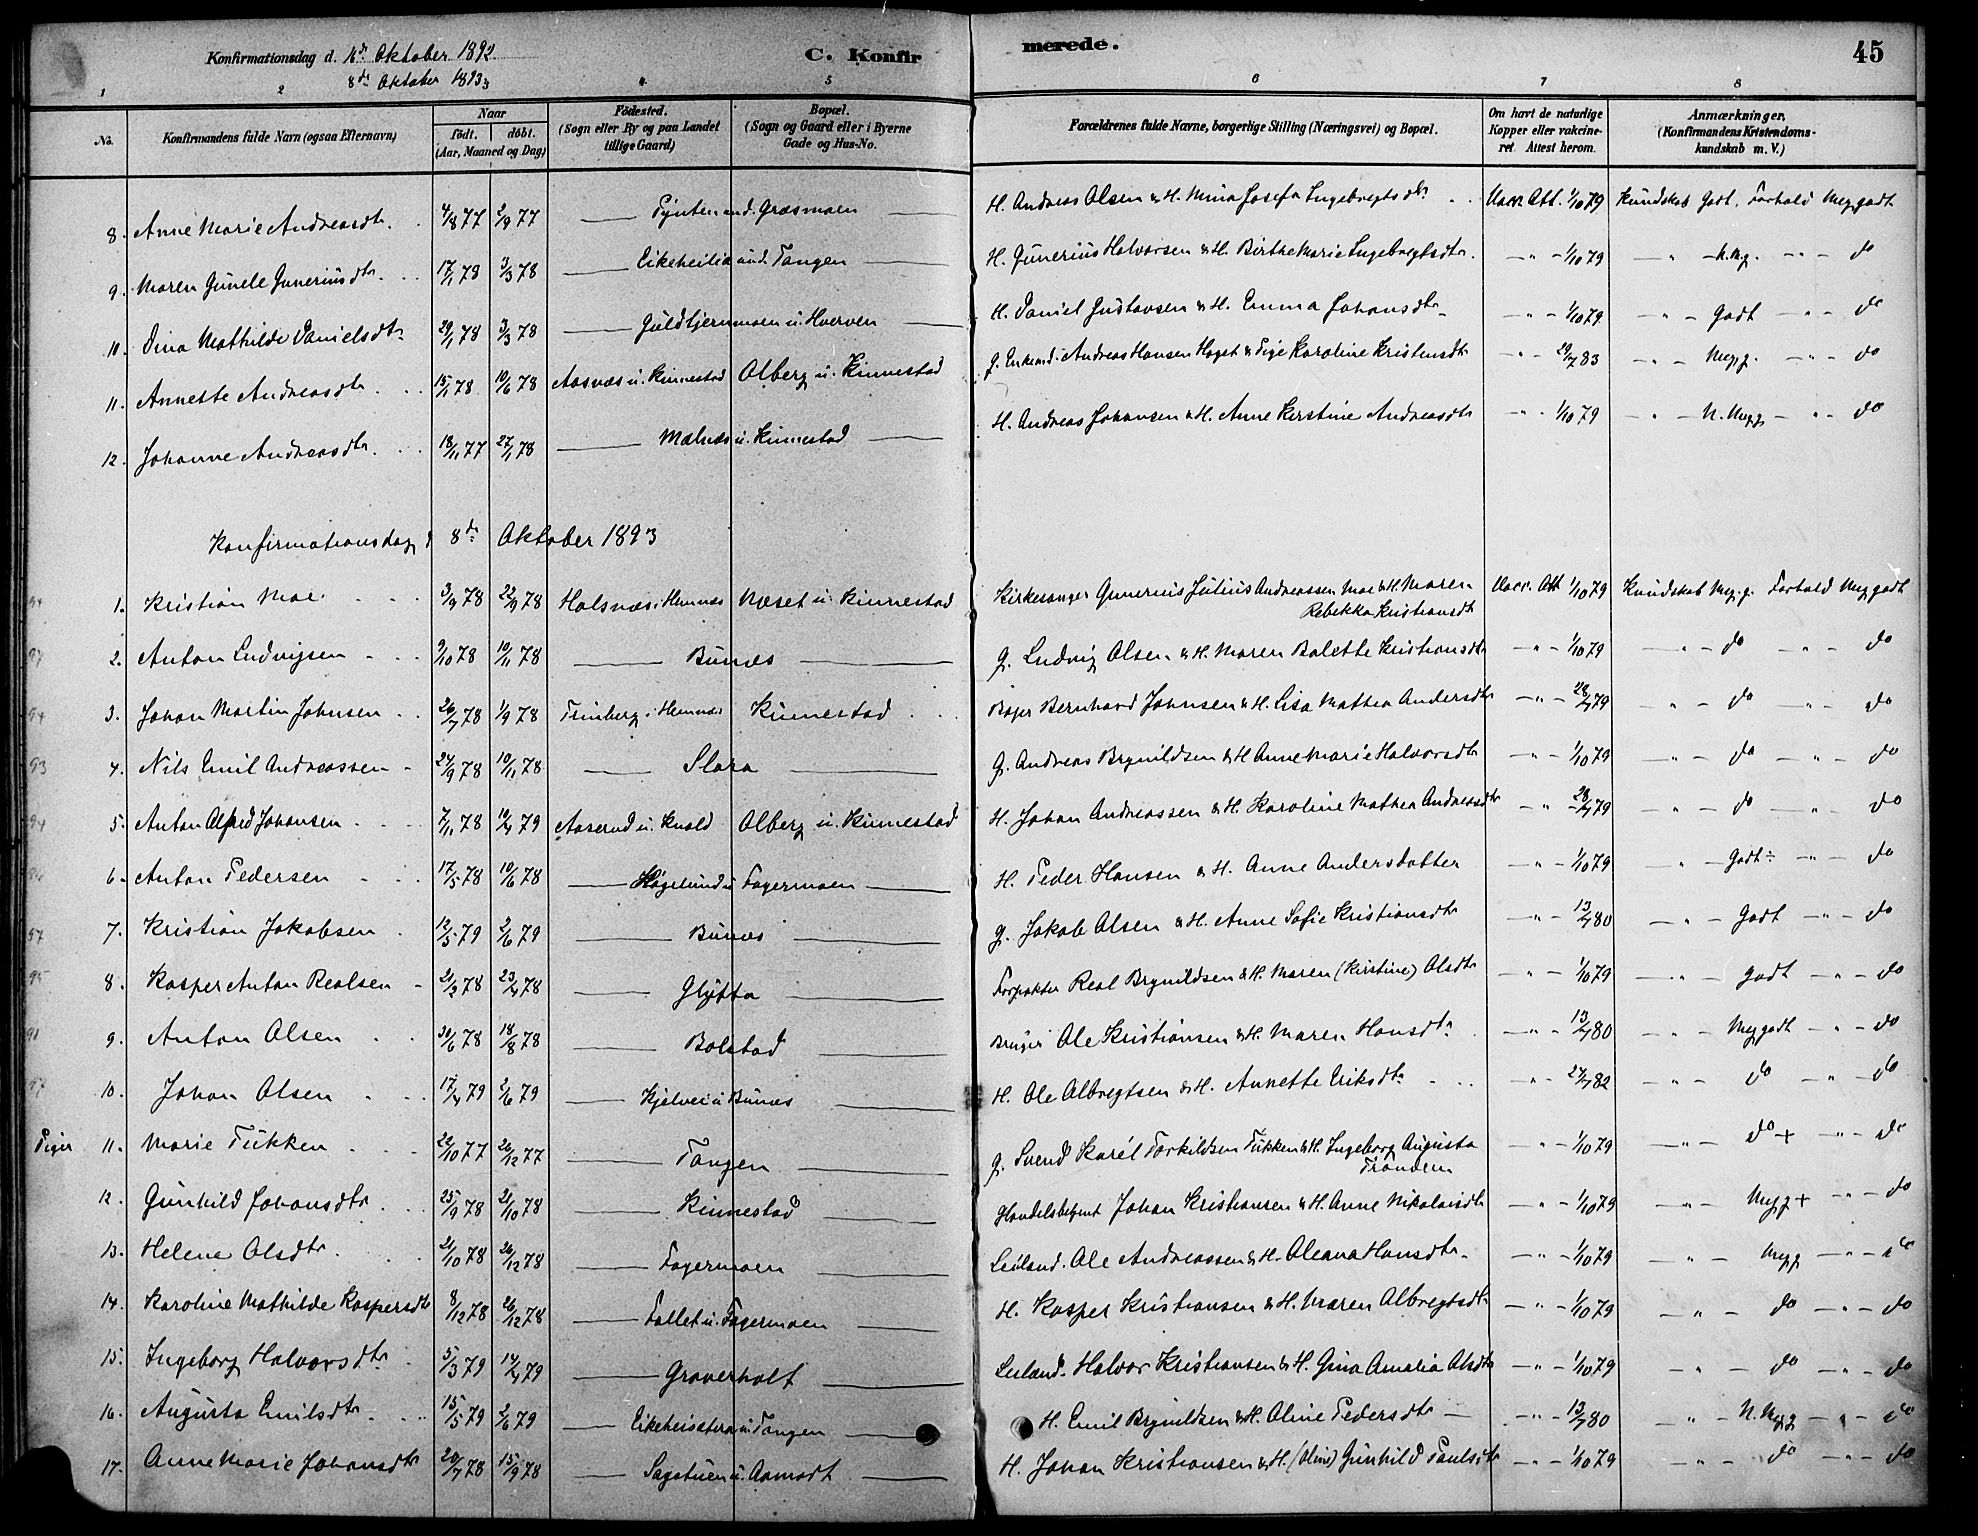 Konfirmationsdag d. 16de Oktober 1892
8de Oktober 1893
C. Konfirmerede.
45
1 2 4 5 6 7 8
No. Konfirmandens fulde Navn (ogsaa Efternavn) Naar født. døbt. (Aar, Maaned og Dag) Fødested. (Sogn eller By og paa Landet tillige Gaard) Bopæl. (Sogn og Gaard eller i Byerne Gade og Hus-No. Forældrenes fulde Navne, borgerlige Stilling (Næringsvei) og Bopæl. Om havt de naturlige Kopper eller vakcineret. Attest herom. Anmærkninger, (Konfirmandens Kristendomskundskab m. V.)
8. Anne Marie Andreasdtr. 4/8 77 2/9 77 Tynten und. Græsmoen H. Andreas Olsen & H. Mina Josefa Ingebregtsdtr. Vacc. Att. 1/10 79 Kundskab Godt. Forhold Meg. godt
9. Maren Gunele Guneriusdtr. 17/1 78 3/3 78 Eikeheilia und. Tangen H. Gunerius Halvorsen & H. Birthe Marie Ingebregtsdtr. — " — 1/10 79 — " — N. Mg. — " — do
10. Dina Mathilde Danielsdtr. 29/1 78 3/3 78 Guldtjernmoen u. Hverven H. Daniel Gustavsen & H. Emma Johansdtr. — " — 1/10 79 — " — Godt — " — do
11. Annette Andreasdtr. 15/1 78 10/6 78 Aasnæs u. Kinnestad Olberg u. Kinnestad g. Enkemd. Andreas Hansen Haget & Pige Karoline Kristensdtr — " — 29/7 83 — " — Meg g. — " — do
12. Johanne Andreasdtr. 18/11 77 27/1 78 Mælnæs u. Kinnestad H. Andreas Johansen & H. Anne Kerstine Andreasdtr — " — 1/10 79 — " — N. Meg g — " — do
Konfirmationsdag d 8de Oktober 1893
1. Kristian Moe 3/9 78 22/9 78 Holsnæs i Hemnæs Næset u. Kinnestad Kirkesanger Gunerius Julius Andreassen Moe & H. Maren Rebekka Kristiansdt Vacc. Att 1/10 79 Kundskab Meg. g. Forhold Meg godt
97 2. Anton Ludvigsen 9/10 78 10/11 78 Bunæs g. Ludvig Olsen & H. Maren Bolette Kristiansdtr — " — 1/10 79 — " — do — " — do
94 3. Johan Martin Johnsen 26/7 78 1/9 78 Trinberg i Hemnæs Kinnestad Bager Bernhard Johnsen & H. Lisa Mathea Andersdtr — " — 28/7 79 — " — do — " — do
93 4. Nils Emil Andreassen 24/9 78 10/11 78 Slora g. Andreas Brynildsen & H Anne Marie Halvorsdtr — " — 1/10 79 — " — do — " — do
94 5. Anton Alfred Johansen 7/11 78 14/4 79 Aaserud u. Kvold Olberg u. Kinnestad H. Johan Andreassen & H. Karoline Mathea Andreasdtr — " — 28/7 79 — " — do — " — do
6. Anton Pedersen 17/5 78 10/6 78 Høgelund u Fagermoen H. Peder Hansen & H. Anne Andersdatter — " — 1/10 79 " Godt ÷ — " — do
97 7. Kristian Jakobsen 12/5 79 2/6 79 Bunæs g. Jakob Olsen & H. Anne Sofie Kristiansdtr — " — 13/7 80 — " — Godt — " — do
95 8. Kasper Anton Realsen 21/2 78 23/4 78 Glytta Forpakter Real Brynildsen & H. Maren (Kirstine) Olsdtr — " — 1/10 79 — " — godt — " — do
91 9. Anton Olsen 30/6 78 18/8 78 Bolstad Bruger Ole Kristiansen & H. Maren Hansdtr. — " — 13/7 80 — " — Meg godt — " — do
97 10. Johan Olsen 17/4 79 2/6 79 Kjelvei u Bunæs H. Ole Albregtsen & H. Annette Eriksdtr. — " — 27/7 82 — " — do — " — do
Piger 11. Marie Tukken 22/10 77 26/12 77 Tangen g. Svend Karél Torkildsen Tukken & H. Ingeborg Augusta Tranden — " — 1/10 79 — " — do + — " — do
12. Gunhild Johansdtr. 25/9 78 21/10 78 Kinnestad Handelsbetjent Johan Kristiansen & H. Anne Nikolaisdtr — " — 1/10 79 — " — Meg g + — " — do
13. Helene Olsdtr. 21/10 78 26/12 78 Fagermoen Leiland. Ole Andreassen & H. Oleana Hansdtr. — " — 1/10 79 " — Meg g — " — do
14. Karoline Mathilde Kaspersdtr 8/12 78 26/12 78 Fallet u. Fagermoen H. Kasper Kristiansen & H. Maren Albregtsdtr — " — 1/10 79 — " — do — " — do
15. Ingeborg Halvorsdtr 5/3 79 14/4 79 Graverholt Leiland. Halvor Kristiansen & H. Gina Amalia Olsdtr — " — 1/10 79 " — do — " — do
16. Augusta Emilsdtr. 15/5 79 2/6 79 Eikeheisetra u. Tangen H. Emil Brynildsen & H. Oline Pedersdtr — " — 13/7 80 — " — N. Meg g — " — do
17. Anne Marie Johansdtr 20/7 78 15/9 78 Sagstuen u. Aamodt H. Johan Kristiansen & H. (Oline) Gunhild Paulsdtr — " — 1/10 79 — " — do — " — do